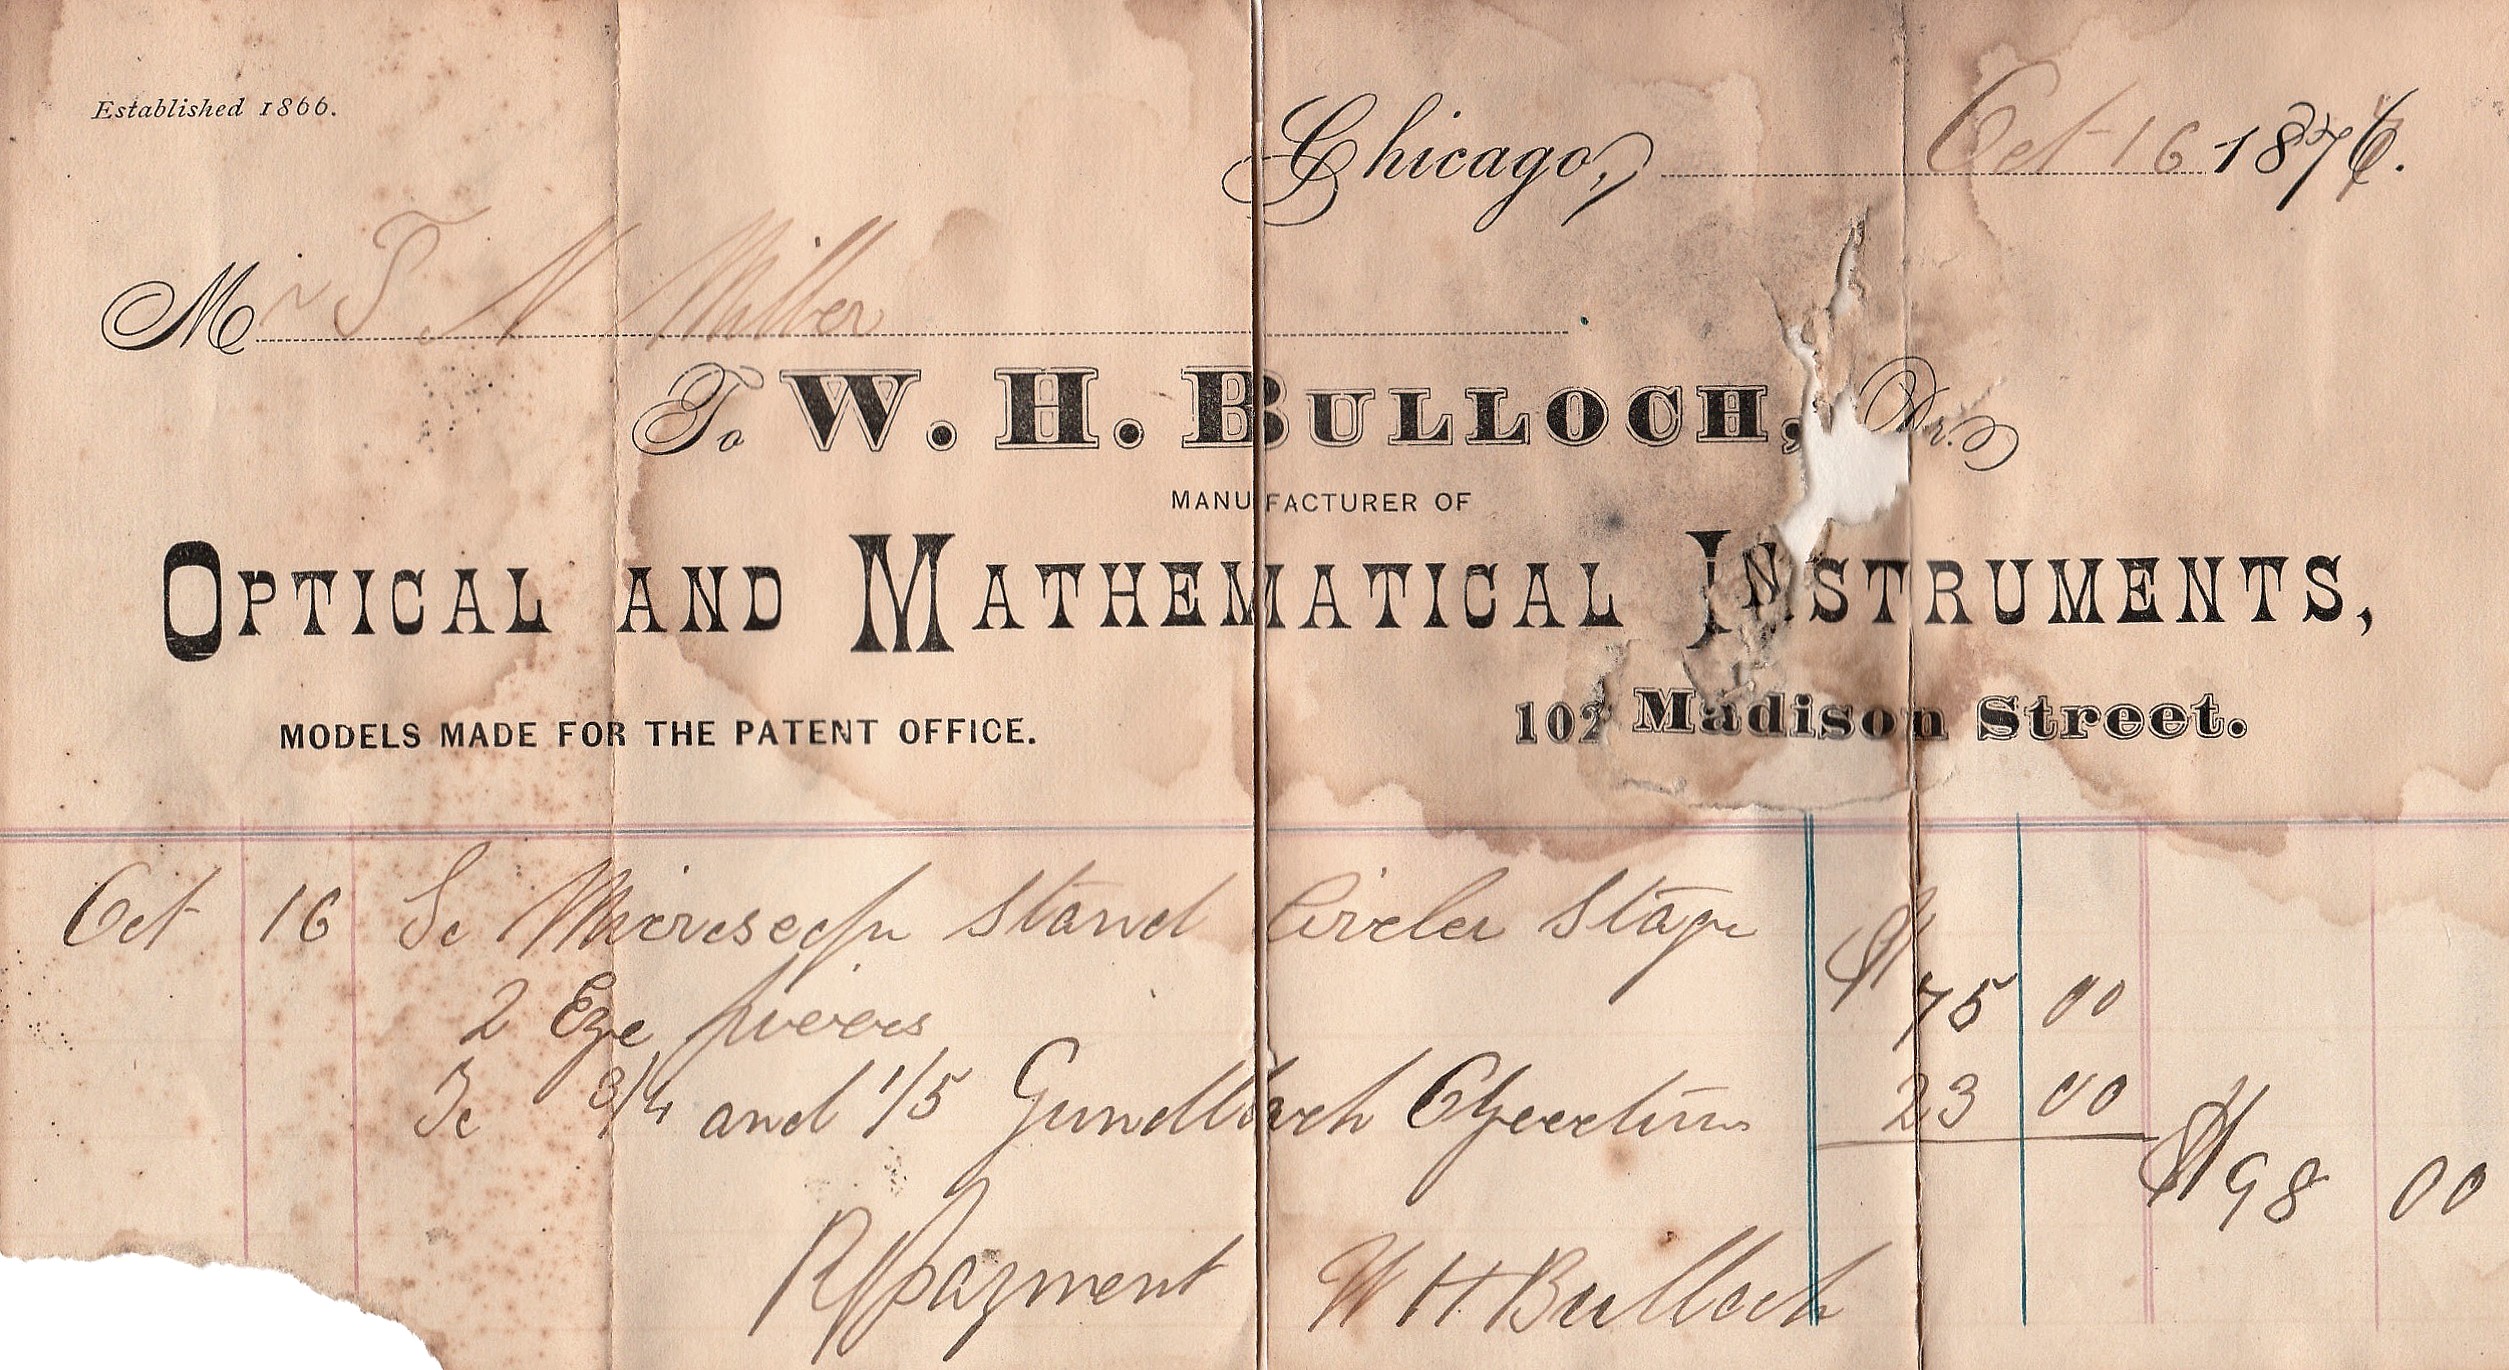 Established 1866.
Chicago, Oct 16 1876.
Mr T. N Miller
To W. H. BULLOCH, Dr.
MANUFACTURER OF
OPTICAL AND MATHEMATICAL INSTRUMENTS,
MODELS MADE FOR THE PATENT OFFICE. 102 Madison Street.
Oct 16 To Microscope Stand Circler Stage
2 Eye pieces $75 00
To 3/4 and 1/5 Gundlach Objectives 23 00
$98 00
payment W H Bulloch